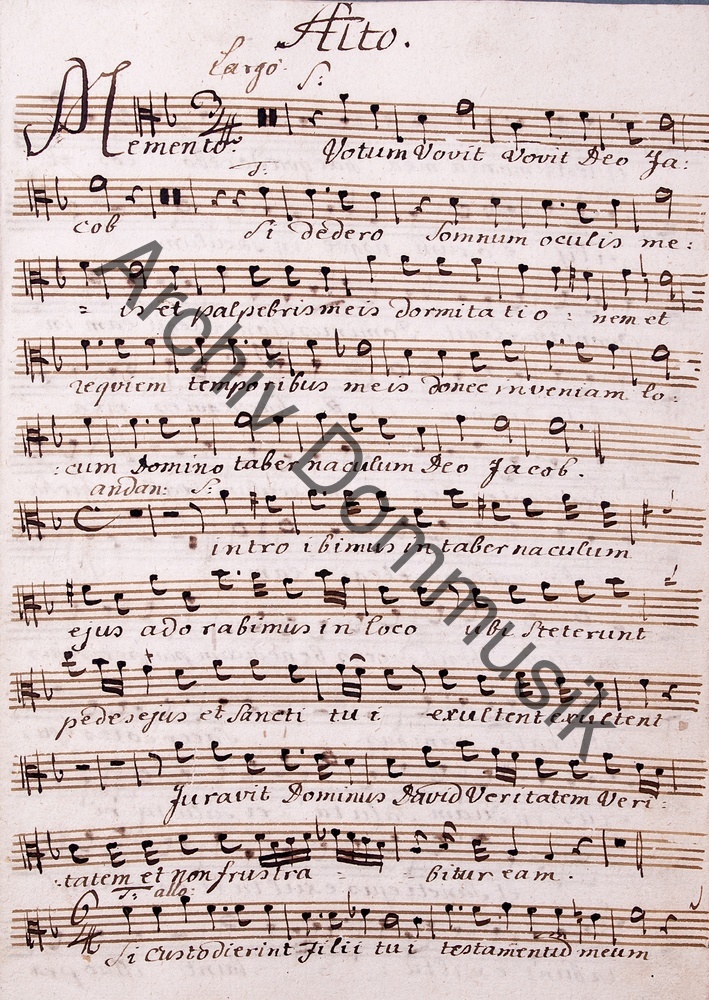 Alto.
Largo. S:
Memento. Votum Vovit Vovit Deo Ja:
T:
cob Si dedero somnum oculis me:
= is et palpebris meis dormitatio: nem et
requiem temporibus meis donec inveniam lo:
:cum Domino tabernaculum Deo Jacob.
andan: S:
introibimus in tabernaculum
ejus adorabimus in loco ubi steterunt
pedes ejus et Sancti tui exultent exultent
Juravit Dominus David Veritatem Veri:
:tatem et non frustra = = bitur eam.
T: allo:
Si custodierint filii tui testamentum meum
Archiv Dommusik